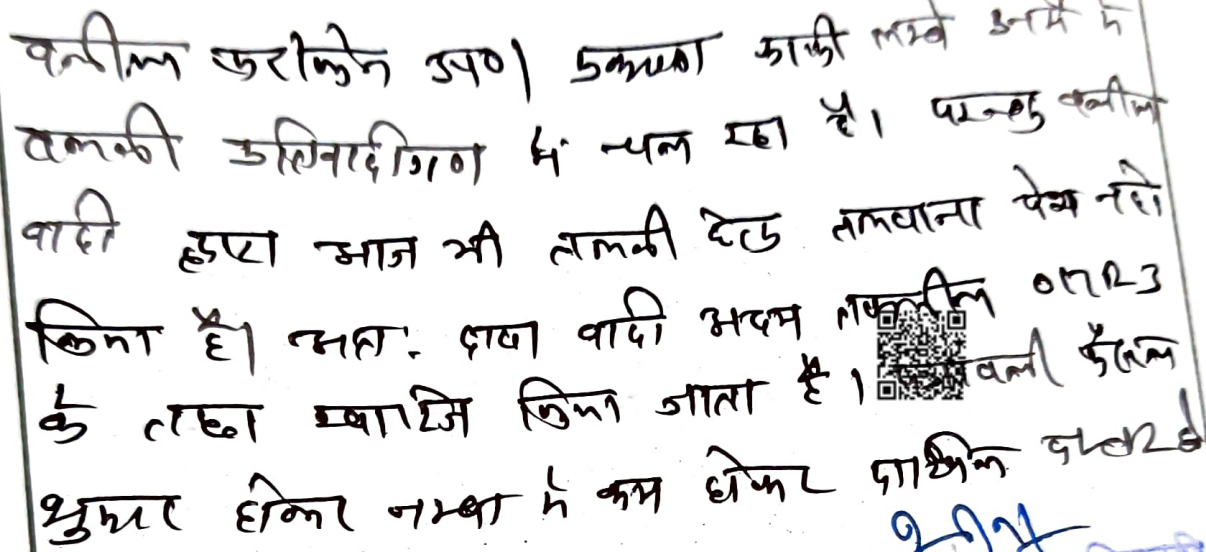 वकील फरीकेन उप०। प्रकरण काफी लम्बे समय से
तलबी प्रतिवादीगण में चल रहा है। परन्तु वकील
वादी द्वारा आज भी तलबी हेतु तलवाना पेश नही
किया है। अतः दावा वादी अदम तकमील O17R3
के तहत खारिज किया जाता है। वली फैसल
शुमार होकर नम्बर से कम होकर दाखिल दफ्तर हो